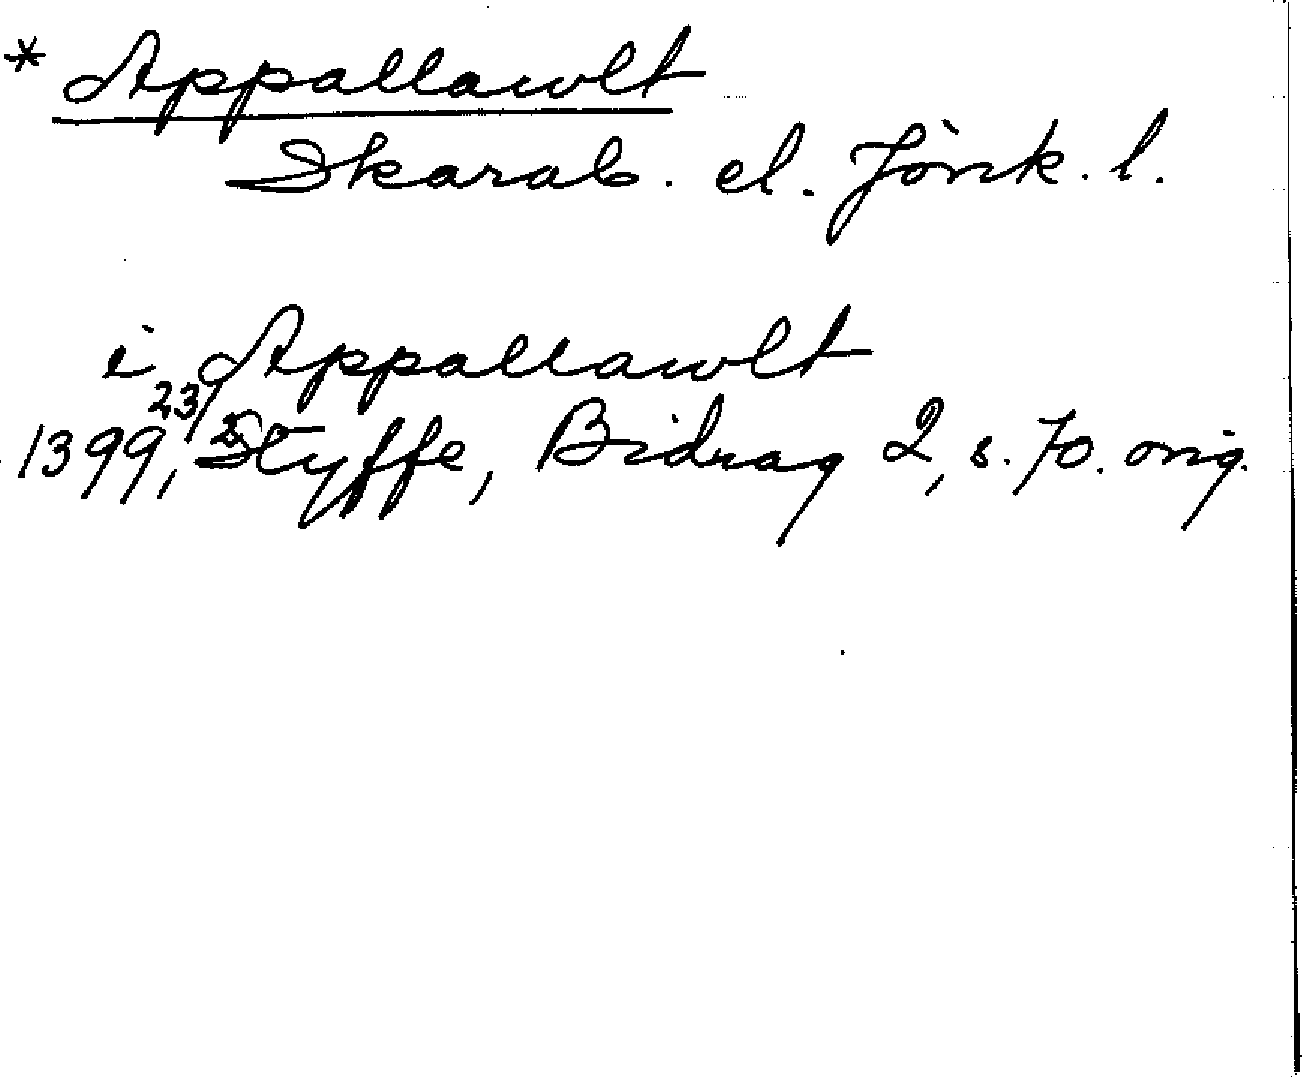 * Appallawlt
Skarab. el. Jönk. l.
i Appallawlt
1399 23/5, Styffe, Bidrag 2, s. 70. orig.